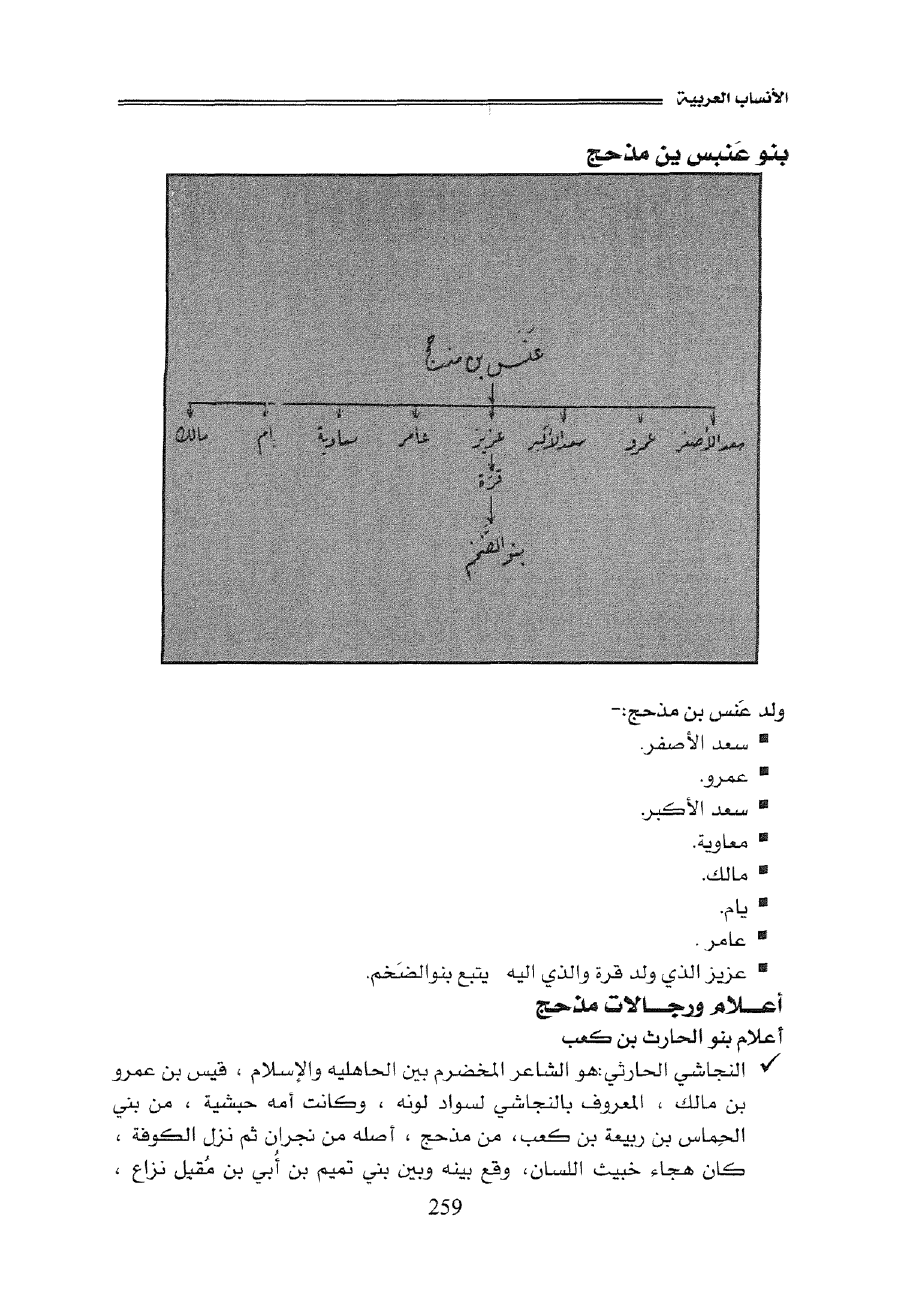 الأنساب العربية
بنو عَنبس ين مذحج
عَنَس بن مذحج
سعد الأصفر عمرو سعد الأكبر عزيز عامر معاوية يام مالك
قرّة
بنو الضَّخم
ولد عَنس بن مذحج:-
▪ سعد الأصفر.
▪ عمرو.
▪ سعد الأكبر.
▪ معاوية.
▪ مالك.
▪ يام.
▪ عامر .
▪ عزيز الذي ولد قرة والذي اليه يتبع بنوالضَخم.
أعـــلام ورجـــالات مذحج
أعلام بنو الحارث بن كعب
✓ النجاشي الحارثي:هو الشاعر المخضرم بين الحاهليه والإسلام ، قيس بن عمرو
بن مالك ، المعروف بالنجاشي لسواد لونه ، وكانت أمه حبشية ، من بني
الحِماس بن ربيعة بن كعب، من مذحج ، أصله من نجران ثم نزل الكوفة ،
كان هجاء خبيث اللسان، وقع بينه وبين بني تميم بن أُبي بن مُقبل نزاع ،
259